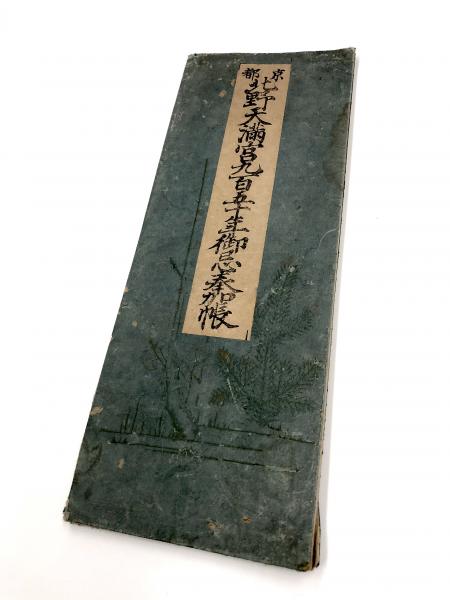 京都北野天満宮九百五十年御忌奉加帳